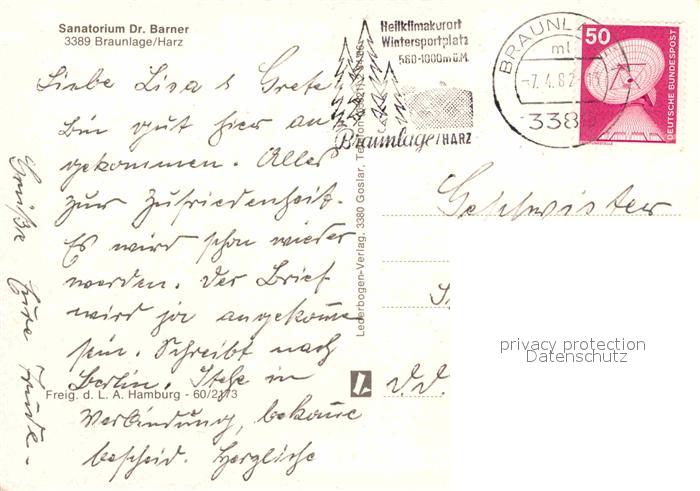 Sanatorium Dr. Barner
3389 Braunlage/Harz
Liebe Lisa & Grete
Bin gut hier an
gekommen. Alles
zur Zufriedenheit.
Es wird schon wieder
werden. Der Brief
wird ja angekomme
sein. Schreibt nach
Berlin. Stehe in
Verbindung, bekomme
bescheid. Herzliche
Grüße Eure Trude.
Freig. d. L. A. Hamburg - 60/2173
Lederbogen-Verlag, 3380 Goslar, Telefon
Heilklimakurort
Wintersportplatz
560-1000m ü.M.
Braunlage/HARZ
BRAUNLA
ml
-7.4.82
338
50
DEUTSCHE BUNDESPOST
Geschwister
privacy protection
Datenschutz